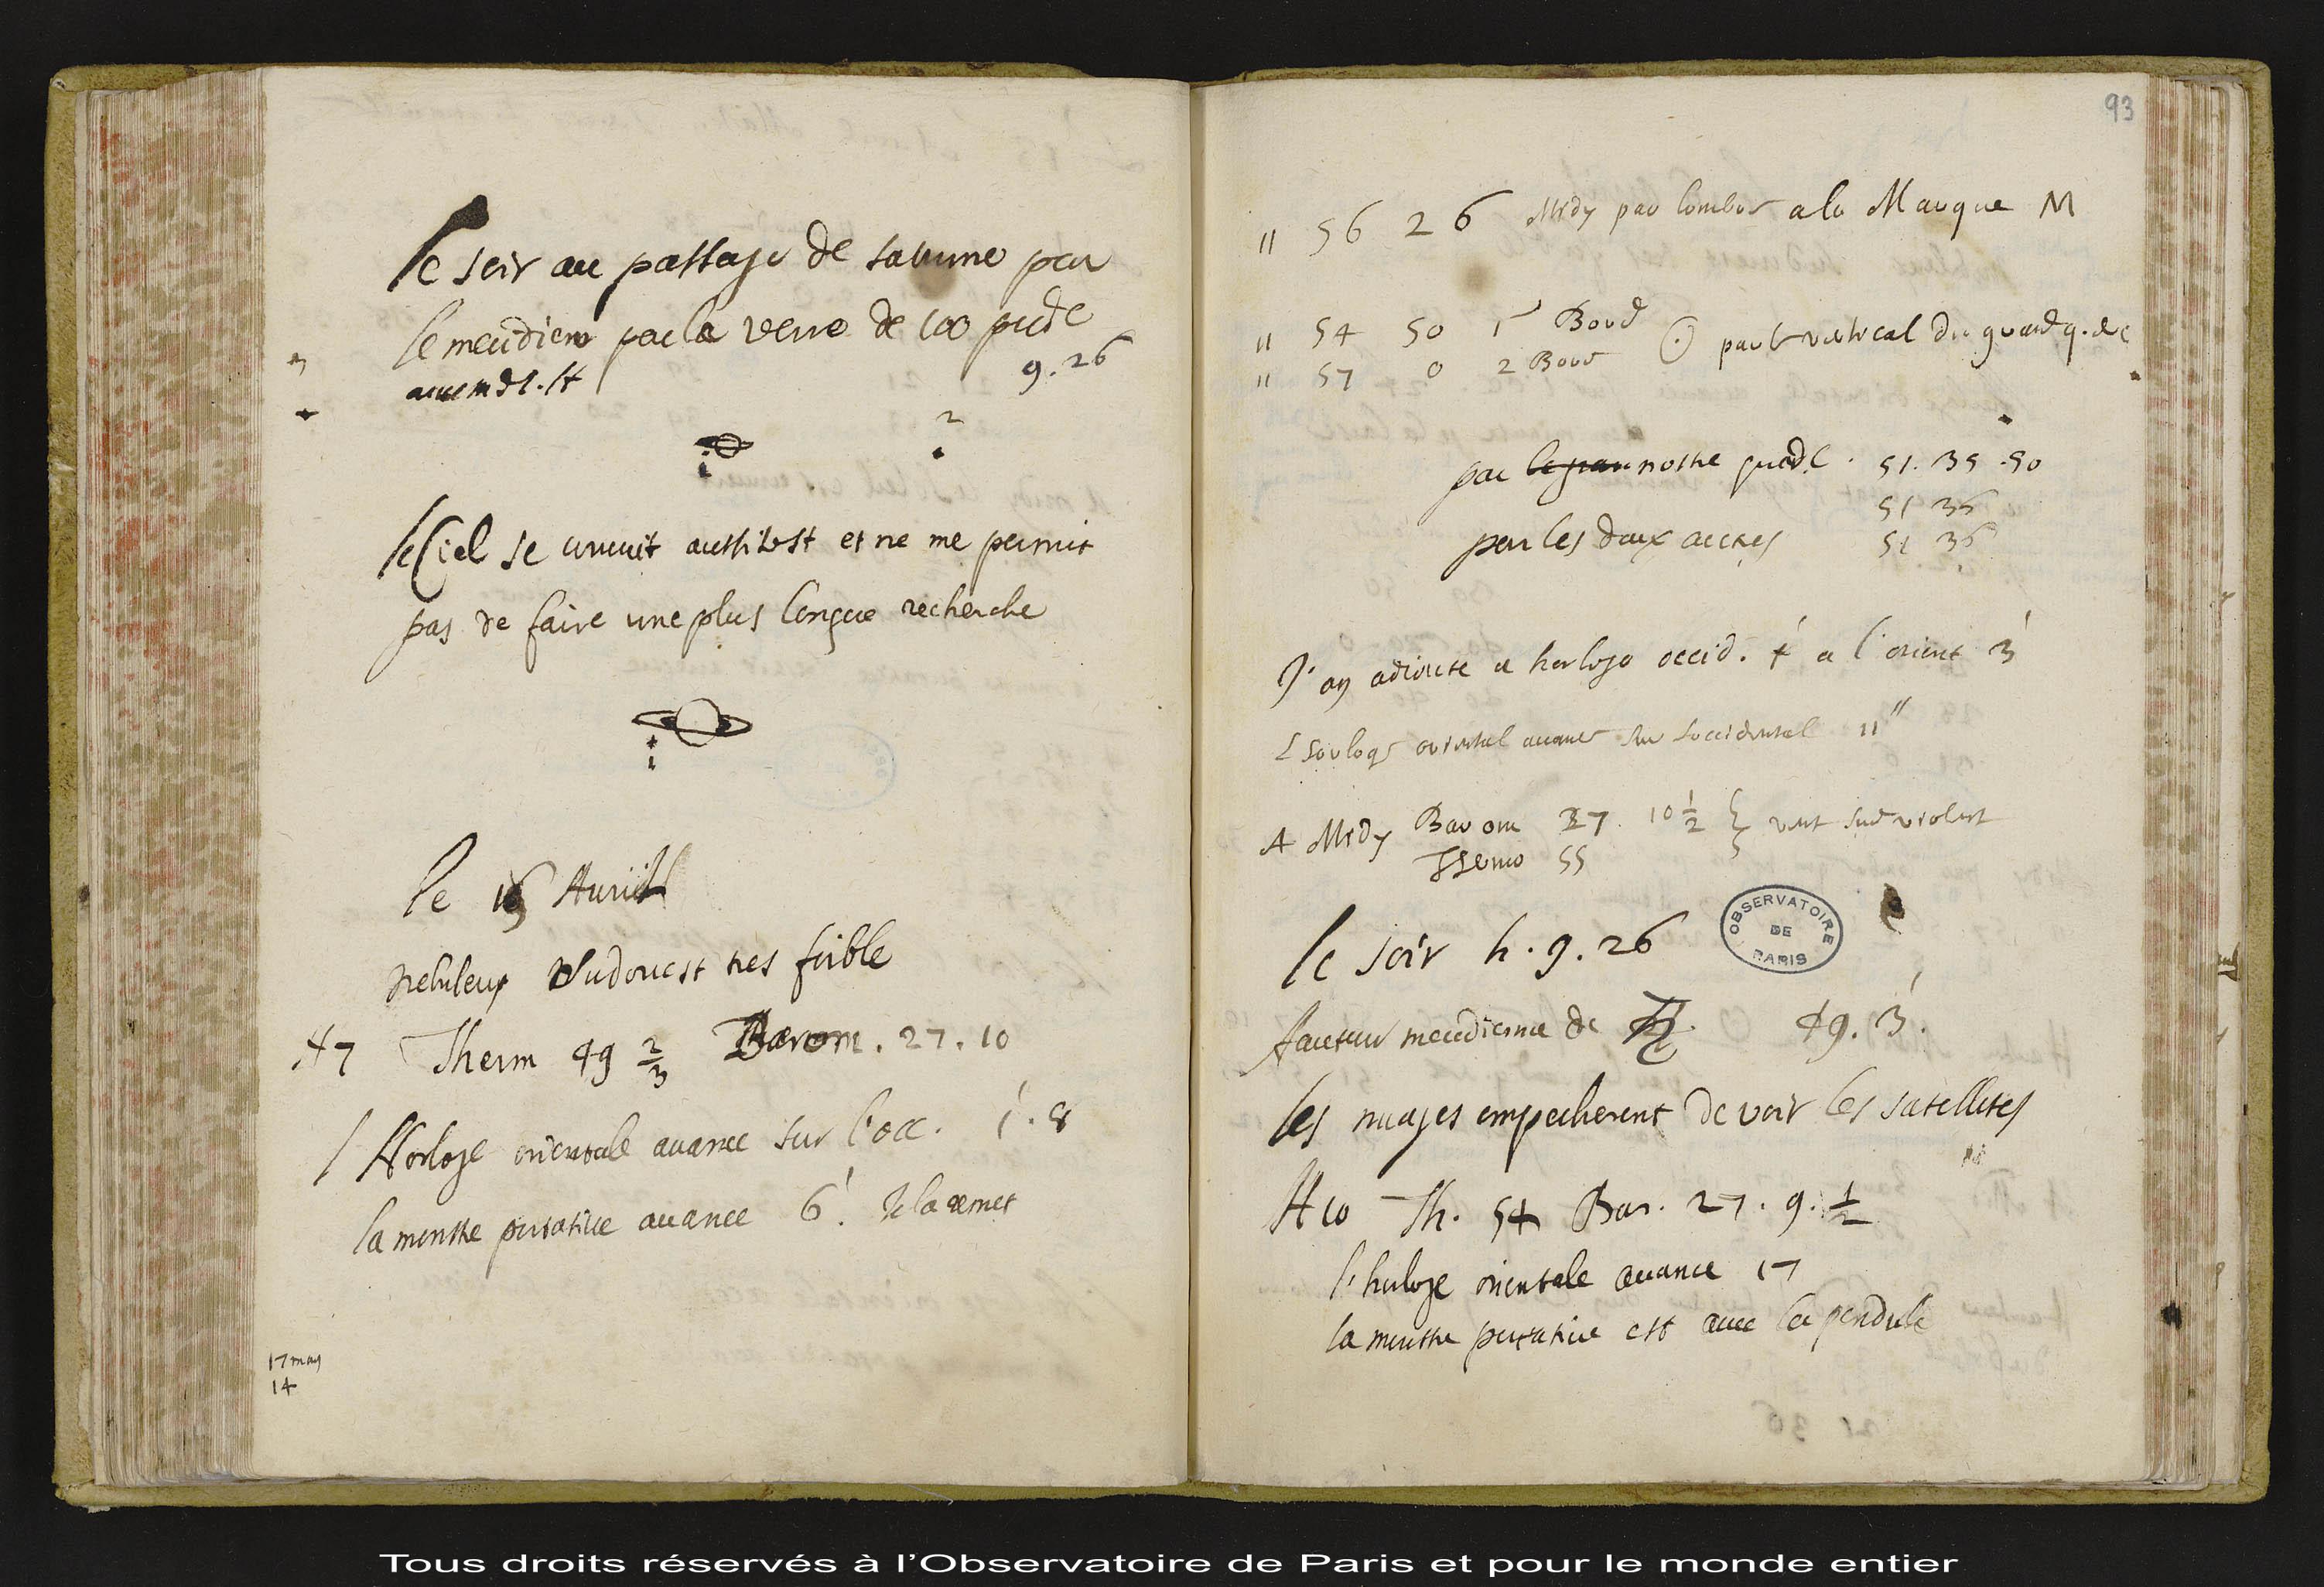 le soir au passage de saturne par
le meridien par le verre de 100 pieds
aviemdt. H 9.26
3
2
1
le Ciel se couvrit aussitost et ne me permit
pas de faire une plus longue recherche
1
le 16 Avril
Nebuleux Sudouest tres foible
H7 Therm 49 2/3 Barom. 27.10
l'Horloge orientale avance sur l'occ. 1'. 8
la monstre portative avance 6'. Je la remet
17 may
14
93
11 56 26 Midy par lombre a la Marque M
11 54 50 1r Bord
11 57 0 2 Bord ⊙ par le vertical du grand q. de c
par le gran nostre quad.C. 51. 35. 50
51 36
par les deux autres 51 36
J'ay adiouté a horloge occid. 4' a l'orient 3'
L'horloge oriental avance sur loccidental 11"
A Midy Barom 27. 10 1/2 } vent sud violent
Thermo 55
le soir h. 9. 26
OBSERVATOIRE DE PARIS
hauteur meridienne de ♄. 49. 3'.
les nuages empecherent de voir les satellites
H10 Th. 54 Bar. 27. 9. 1/2
l'horloge orientale avance 17
la monstre portative est avec la pendule
Tous droits réservés à l'Observatoire de Paris et pour le monde entier